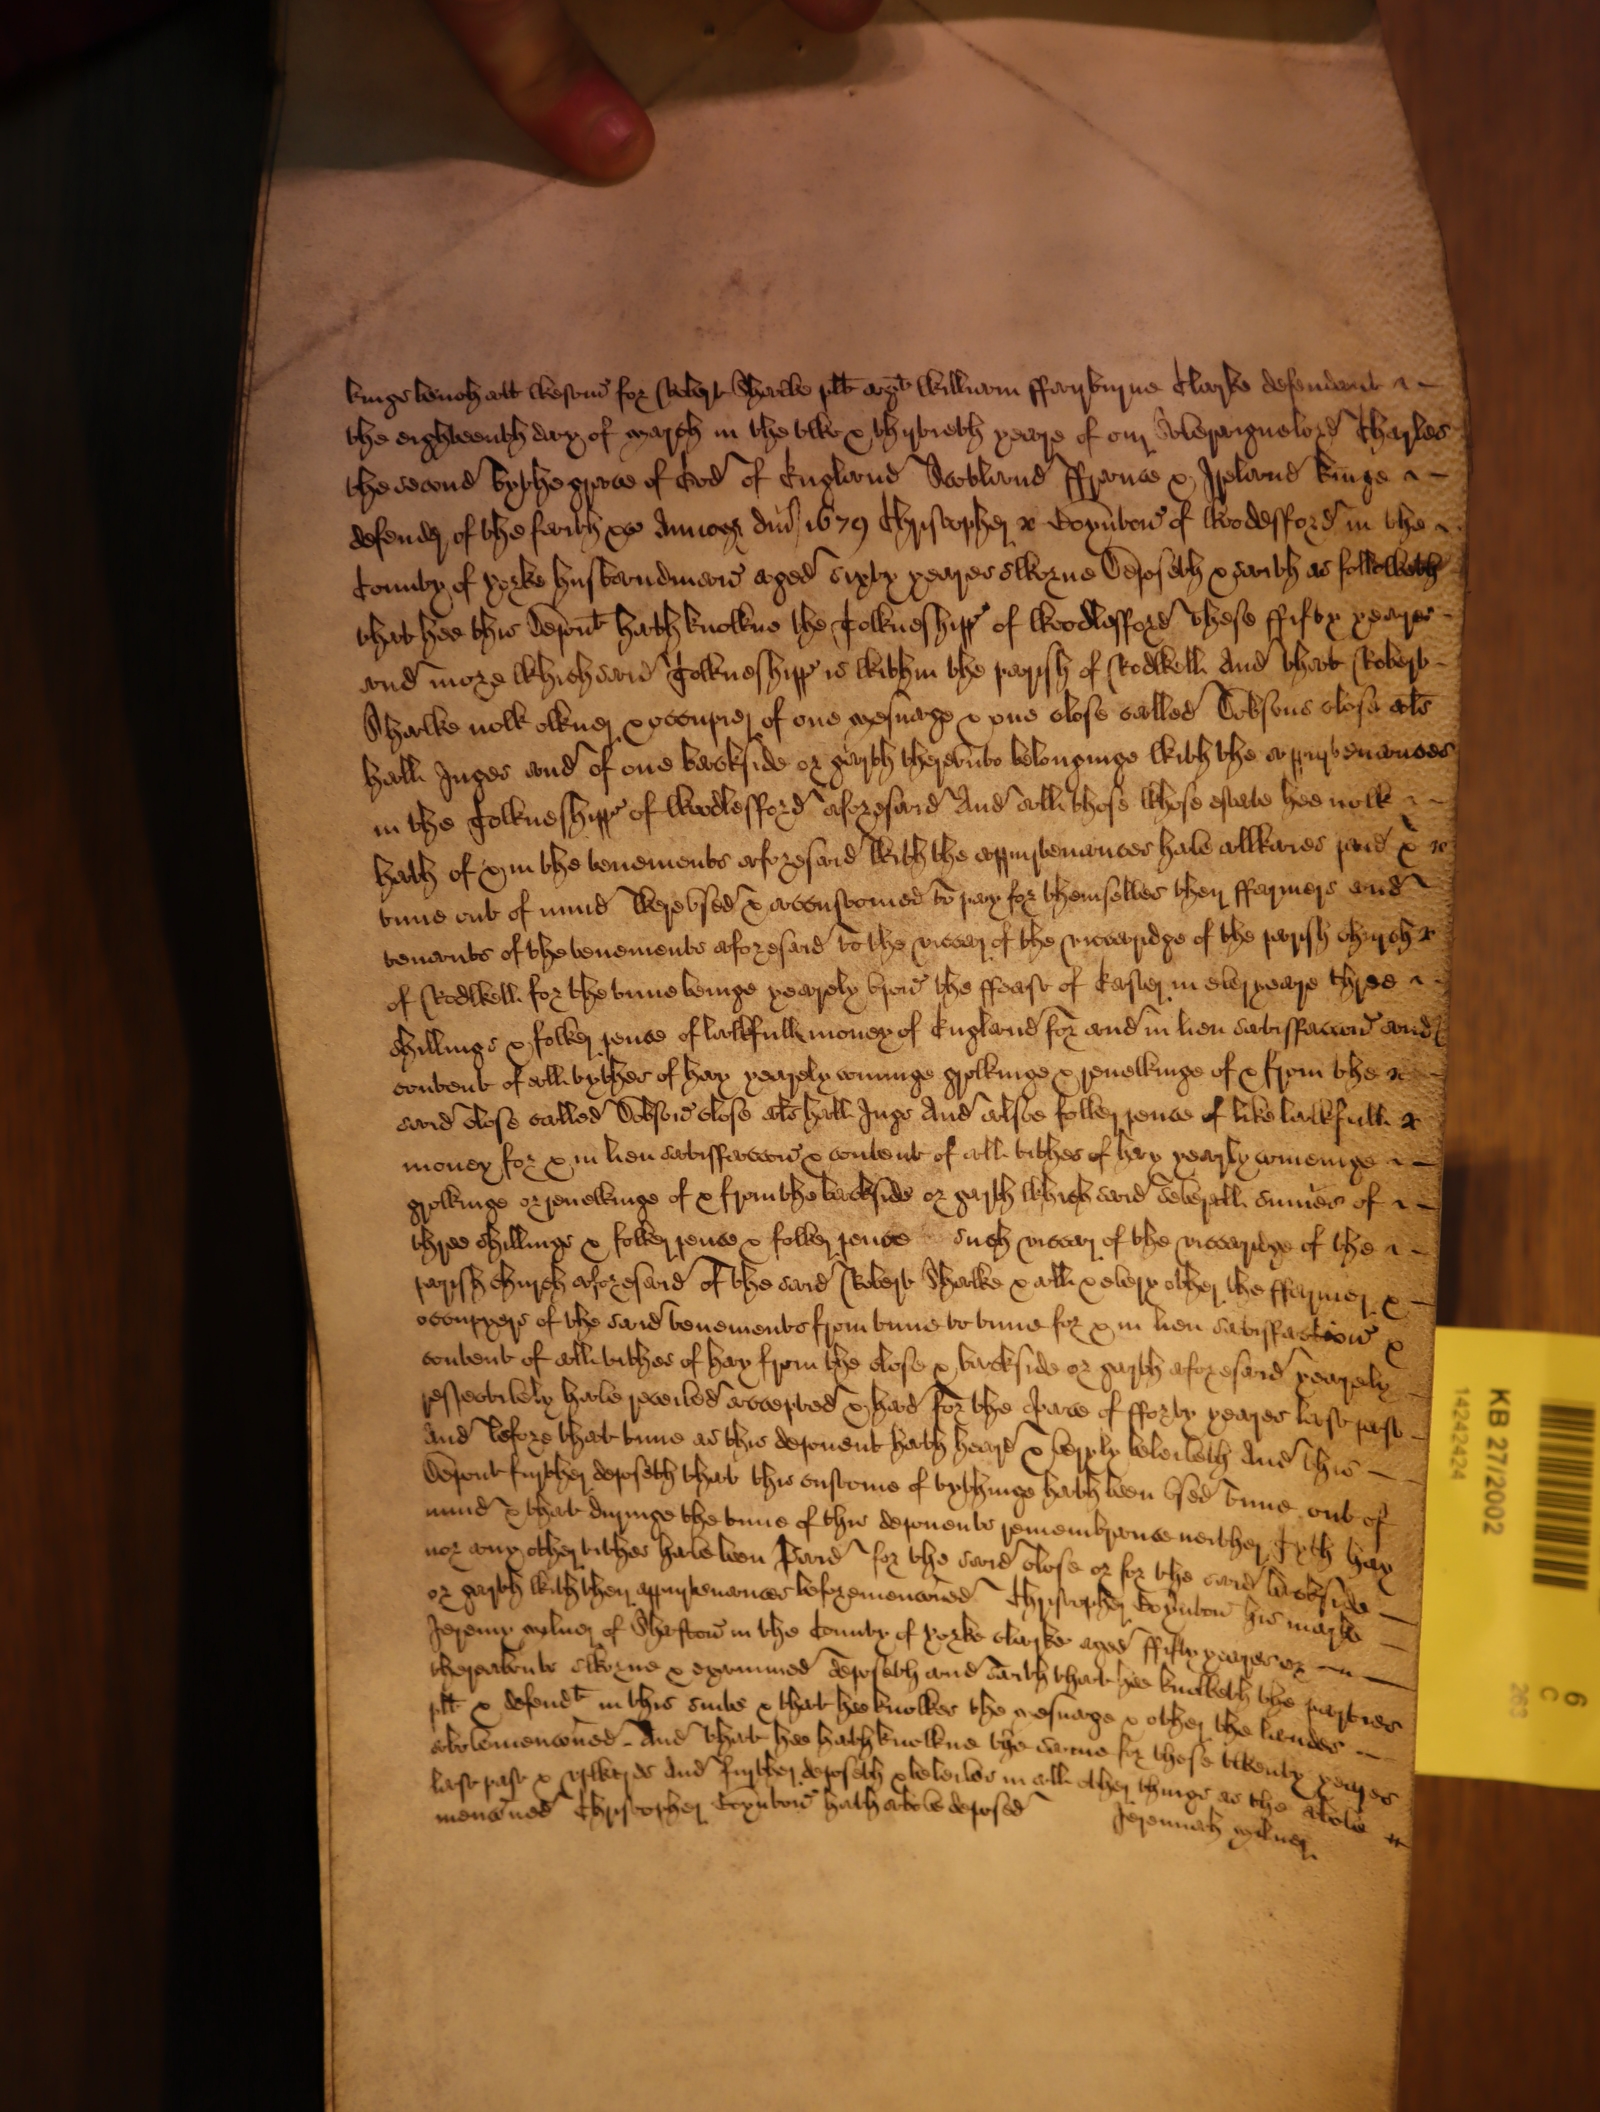 kings bench att Westm for Robert Shawe plt agt William ffayrburne Clarke defendant
the eighteenth day of March in the two & thirtieth yeare of our Soveraigne lord Charles
the second by the grace of God of England Scotland ffrance & Ireland kinge
defender of the faith &c Annoq dni 1679 Christopher Boynton of Woodesford in the
County of Yorke husbandman aged sixty yeares sworne Deposeth & saith as followeth
that hee this Depont hath knowne the Towneshipp of Woodlesford these ffifty yeares
and more which said Towneshipp is within the parish of Rodwell And that Robert
Shawe now owner & occupier of one mesuage & one close called Dobsons close als
hall Inges and of one backside or garth thereunto belonginge with the appurtenances
in the Towneshipp of Woodlesford aforesaid And all those whose estate hee now
hath of & in the tenements aforesaid with the appurtenances have allwaies paid &
time out of mind were used & accustomed to pay for themselves their ffarmers and
tenants of the tenements aforesaid to the viccar of the viccaridge of the parish church
of Rodwell for the time beinge yearely upon the ffeast of Easter in every yeare three
shillings & fower pence of lawfull money of England for and in lieu satisffaccon and
content of all tythes of hay yearely cominge growinge & renewinge of & from the
said close called Dobsons close als hall Ings And alsoe fower pence of like lawfull
money for & in lieu satisffaccon & content of all tithes of hay yearly comeinge
growinge or renewinge of & from the backside or garth which said severall summes of
three shillings & fower pence & fower pence such viccar of the viccaridge of the
parish church aforesaid of the said Robert Shawe & all & every other the ffarmer &
occupyers of the said tenements from time to time for & in lieu satisffaction &
content of all tithes of hay from the close & backside or garth aforesaid yearely
respectively have received accepted & had for the space of fforty yeares last past
And before that time as this deponent hath heard & verily beleiveth And this
Depont further deposeth that this custome of tythinge hath been used time out of
mind & that duringe the time of this deponents remembrance neither Tyth hay
nor any other tithes have been Paid for the said close or for the said backside
or garth with their appurtenances beforemenconed Christopher Boynton his marke
Jeremy Milner of Shafton in the County of Yorke clarke aged ffifty yeares or
thereabouts sworne & examined deposeth and saith that hee knoweth the parties
plt & defendt in this suite & that hee knowes the mesuage & other the landes
abovemenconed And that hee hath knowne the same for these twenty yeares
last past & upwards And further deposeth & beleives in all other things as the above
menconed Christopher Boynton hath above deposed Jeremiah Milner
KB 27/2002
14242424
6
C
263